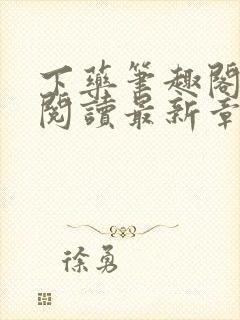 下藥筆趣閣
閱讀最新章
徐勇